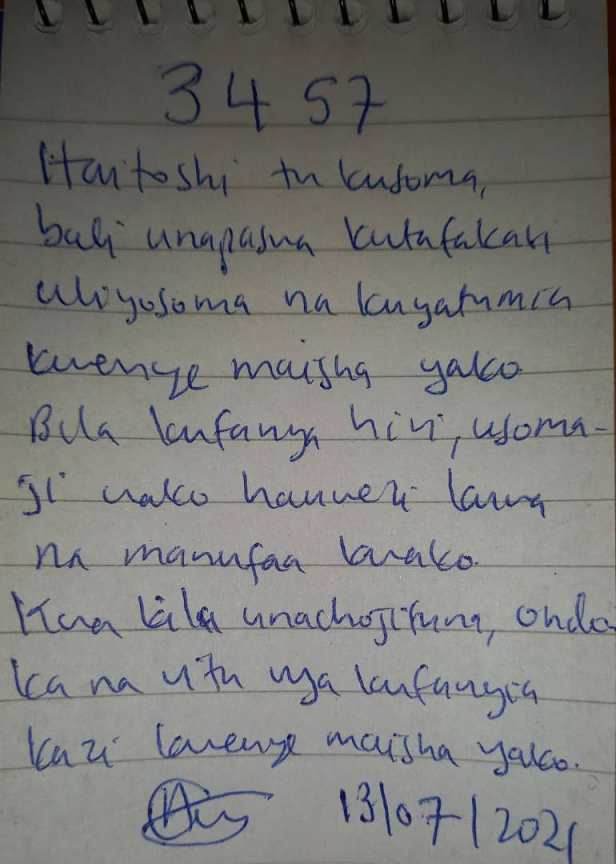 3457
Haitoshi tu kusoma,
bali unapaswa kutafakari
uliyosoma na kuyatumia
kwenye maisha yako
Bila kufanya hivi, usoma-
ji wako hauwezi kuwa
na manufaa kwako.
Kwa kila unachojifunza, ondo
ka na kitu cha kufanyia
kazi kwenye maisha yako.
13/07/2021